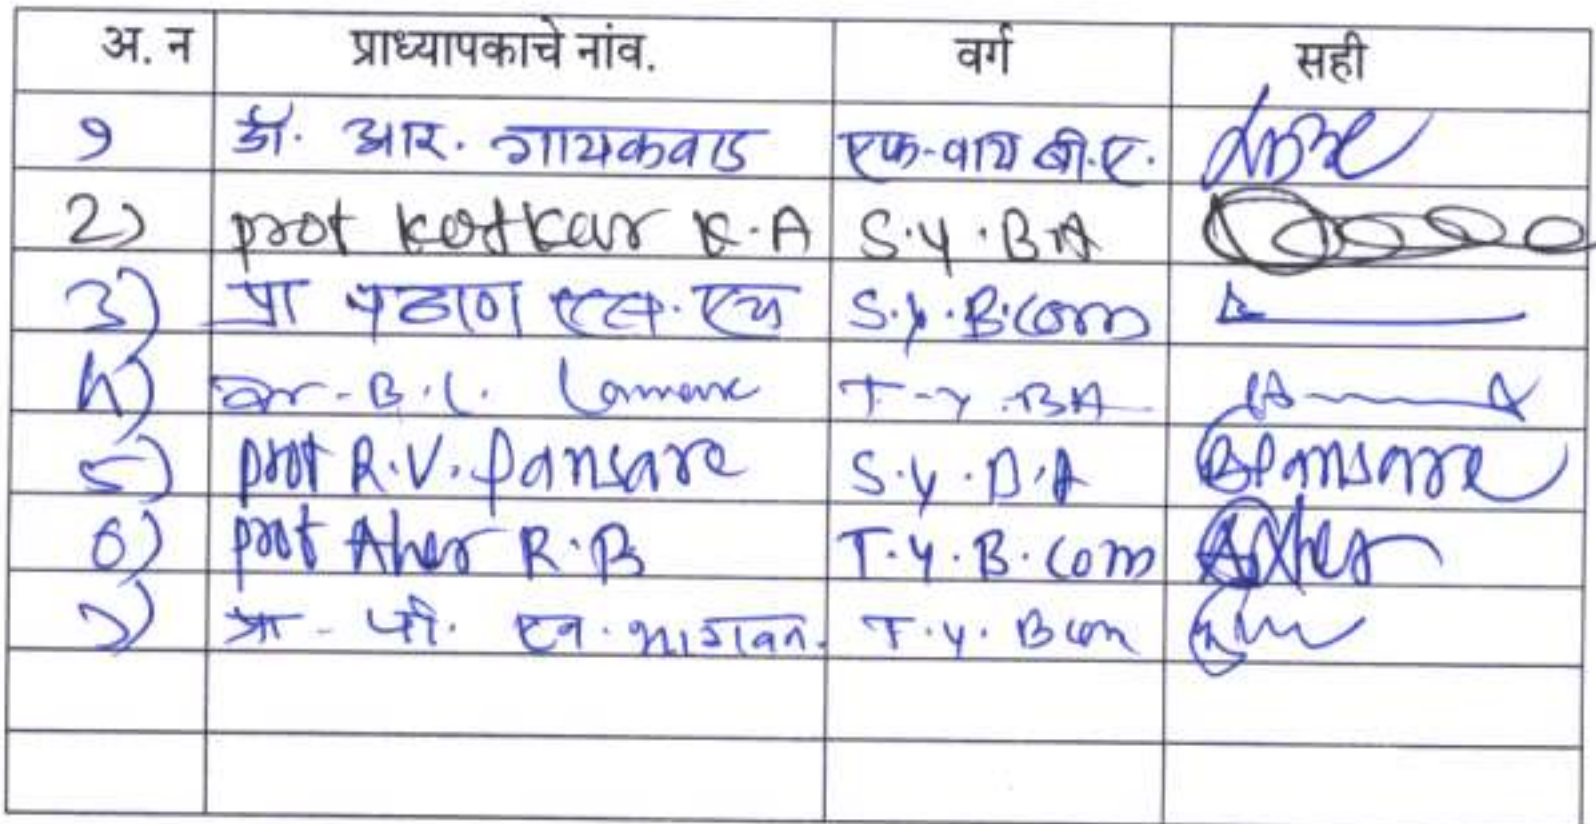 अ. न प्राध्यापकाचे नांव. वर्ग सही
१ डॉ. आर. गायकवाड एफ-वाय बी.ए.
2) prof Kotkar K.A S.Y.BA
3) प्रा पठाण एस. एच S.Y.B.com
4) Dr. B.L. T-Y.BA
5) prof R.V. Pansare S.Y.B.A Pansare
6) prof Aher R.B T.Y.B.com Aher
7) प्रा. पी. एन. T.Y.Bcom